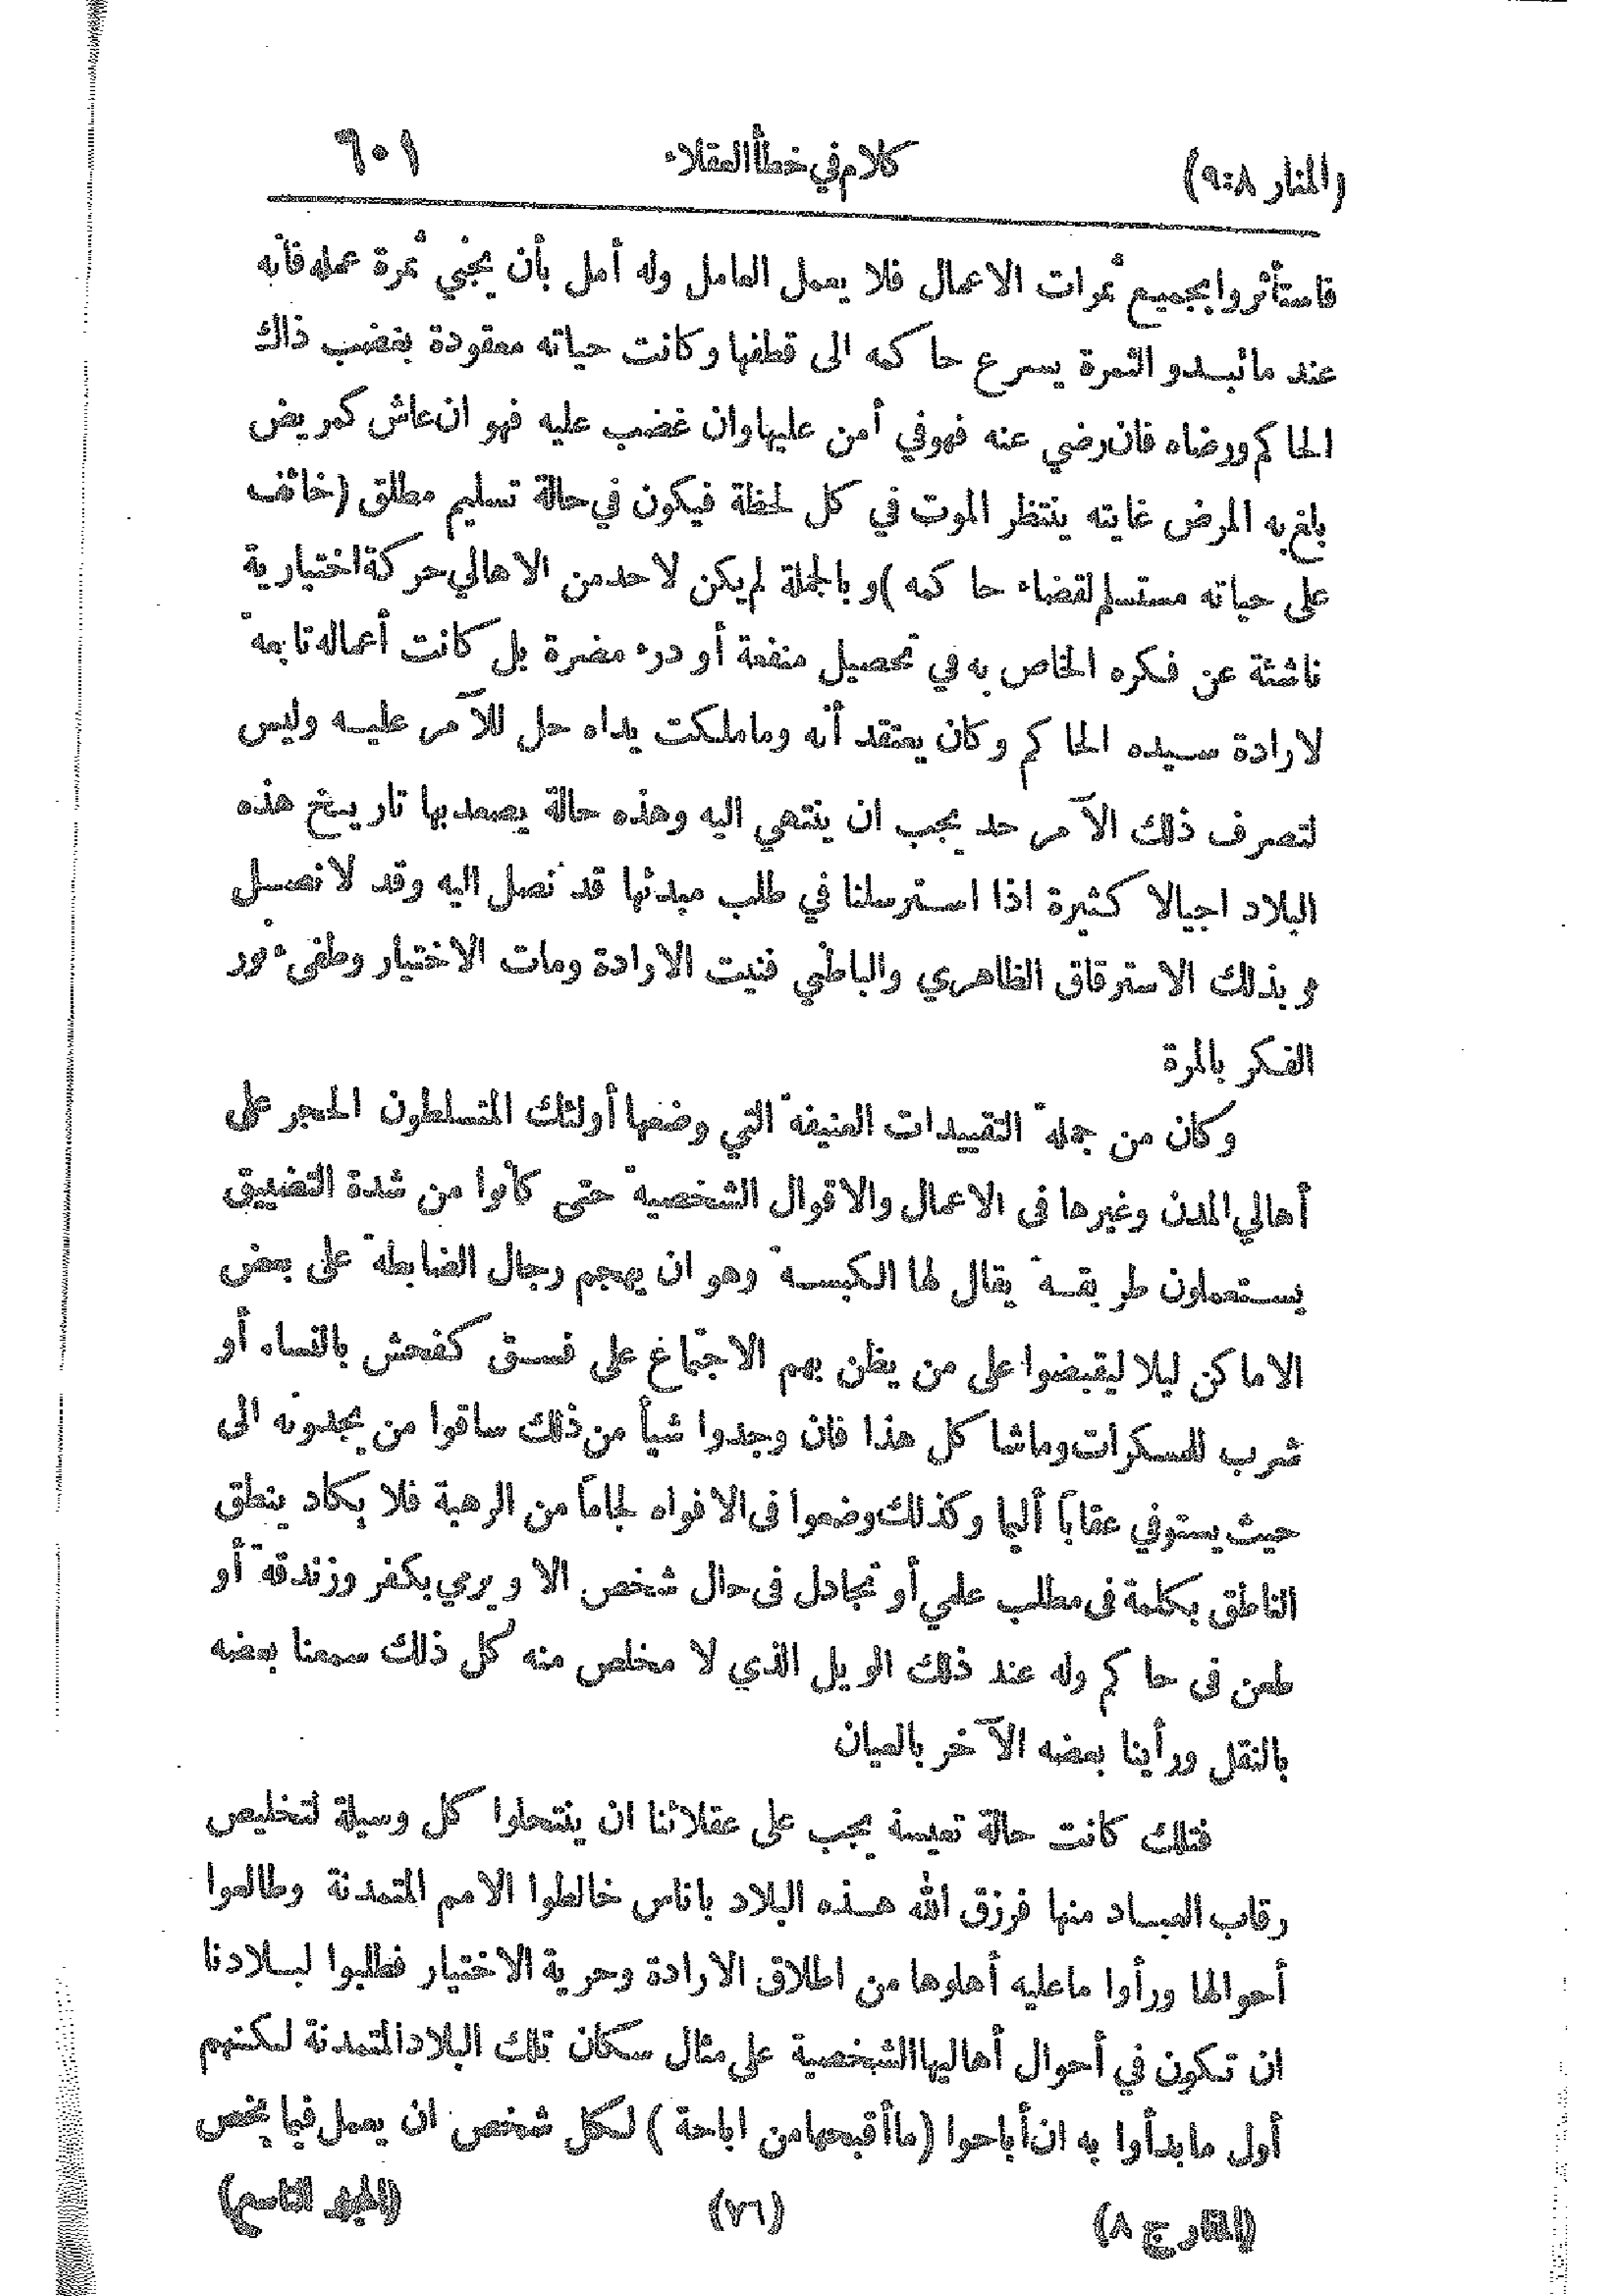 (المنار ٩:٨)
كلام في خطأ العقلاء
٦٠١
فاستأثروا بجميع ثمرات الاعمال فلا يعمل العامل وله أمل بأن يجني ثمرة عمله فانه
عند ما تبدو الثمرة يسرع حاكمه الى قطفها وكانت حياته معقودة بغضب ذاك
الحاكم ورضاه فان رضي عنه فهو في أمن عليها وان غضب عليه فهو ان عاش كمريض
بلغ به المرض غايته ينتظر الموت في كل لحظة فيكون في حالة تسليم مطلق (خائف
على حياته مستسلم لقضاء حاكمه) وبالجملة لم يكن لاحد من الاهالي حركة اختيارية
ناشئة عن فكره الخاص به في تحصيل منفعة أو درء مضرة بل كانت أعماله تابعة
لارادة سيده الحاكم وكان يعتقد أنه وما ملكت يداه حل للآمر عليه وليس
لتصرف ذلك الآمر حد يجب ان ينتهي اليه وهذه حالة يصعد بها تاريخ هذه
البلاد اجيالا كثيرة اذا استرسلنا في طلب مبدئها قد نصل اليه وقد لا نصل
وبذلك الاسترقاق الظاهري والباطني فنيت الارادة ومات الاختيار وطفىء نور
الفكر بالمرة
وكان من جملة التقييدات العنيفة التي وضعها أولئك المتسلطون الحجر على
أهالي المدن وغيرها في الاعمال والاقوال الشخصية حتى كانوا من شدة التضييق
يستعملون طريقة يقال لها الكبسة وهو ان يهجم رجال الضابطة على بعض
الاماكن ليلا ليقبضوا على من يظن بهم الاجتماع على فسق كفحش بالنساء أو
شرب للمسكرات وما شا كل هذا فان وجدوا شيأ من ذلك ساقوا من يجدونه الى
حيث يستوفي عقاباً أليما وكذلك وضعوا في الافواه لجاماً من الرهبة فلا يكاد ينطق
الناطق بكلمة في مطلب علمي أو تجادل في حال شخص الا ويرمي بكفر وزندقة أو
طعن في حاكم وله عند ذلك الويل الذي لا مخلص منه كل ذلك سمعنا بعضه
بالنقل ورأينا بعضه الآخر بالعيان
فتلك كانت حالة تعيسة يجب على عقلائنا ان ينتحلوا كل وسيلة لتخليص
رقاب العباد منها فرزق الله هذه البلاد باناس خالطوا الامم المتمدنة وطالعوا
أحوالها ورأوا ما عليه أهلوها من اطلاق الارادة وحرية الاختيار فطلبوا لبلادنا
ان تكون في أحوال أهاليها الشخصية على مثال سكان تلك البلاد المتمدنة لكنهم
أول ما بدأوا به ان أباحوا (ما أقبحها من اباحة) لكل شخص ان يعمل فيما يخص
(المنار ج ٨)
(٧٦)
(المجلد الثامن)